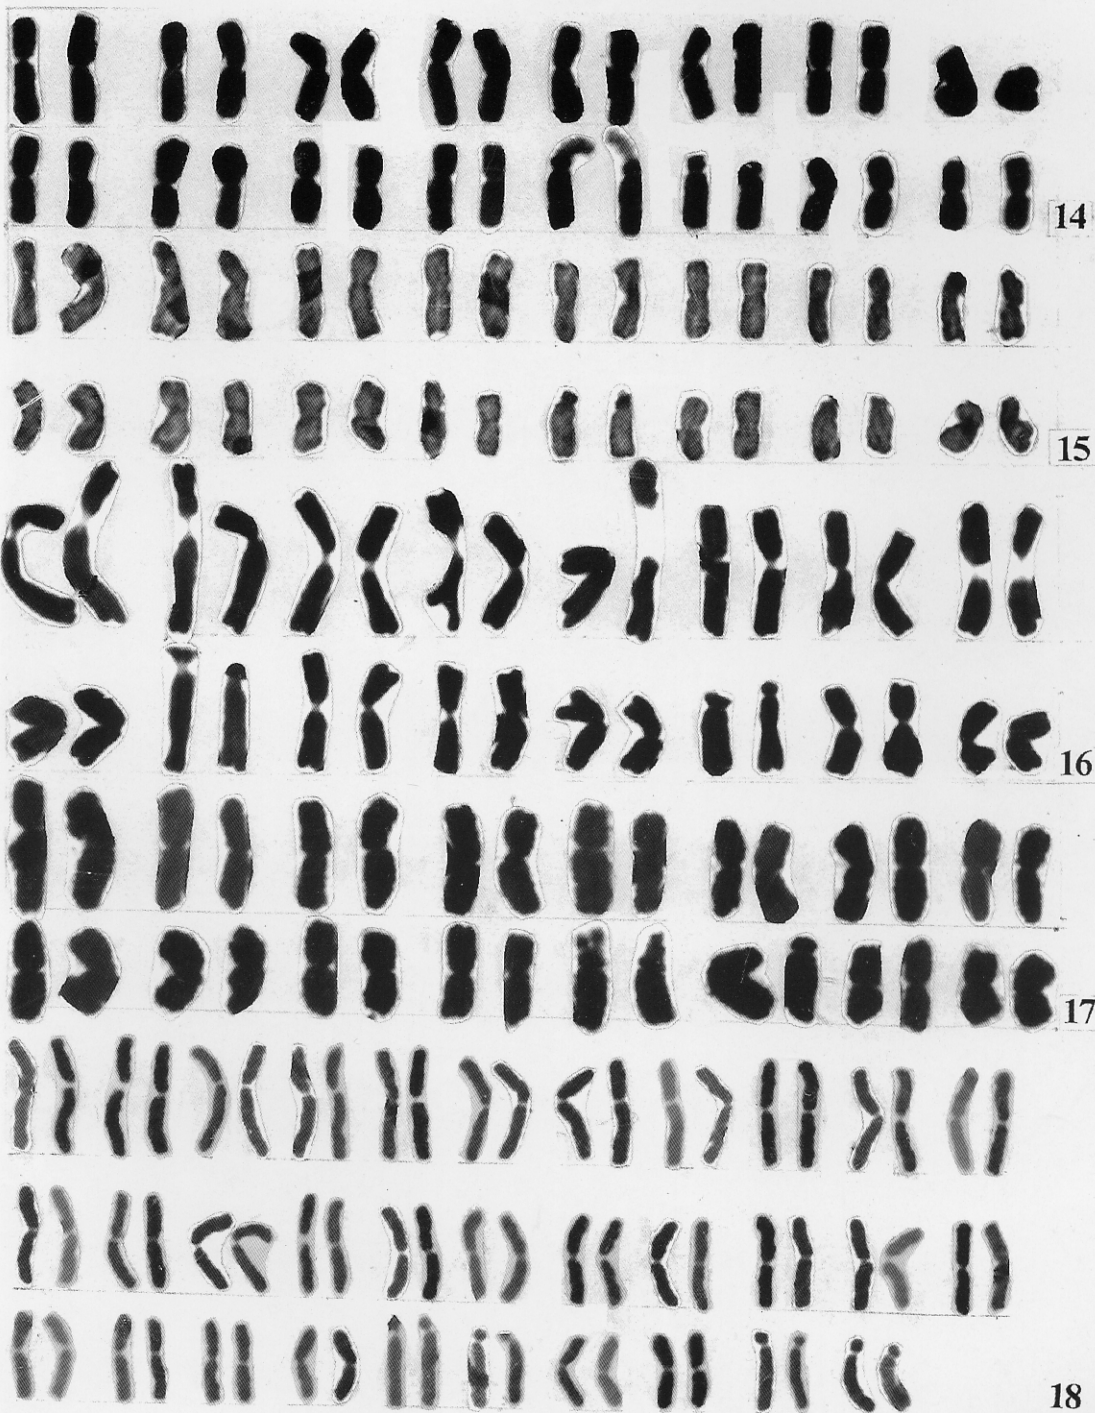 14
15
16
17
18